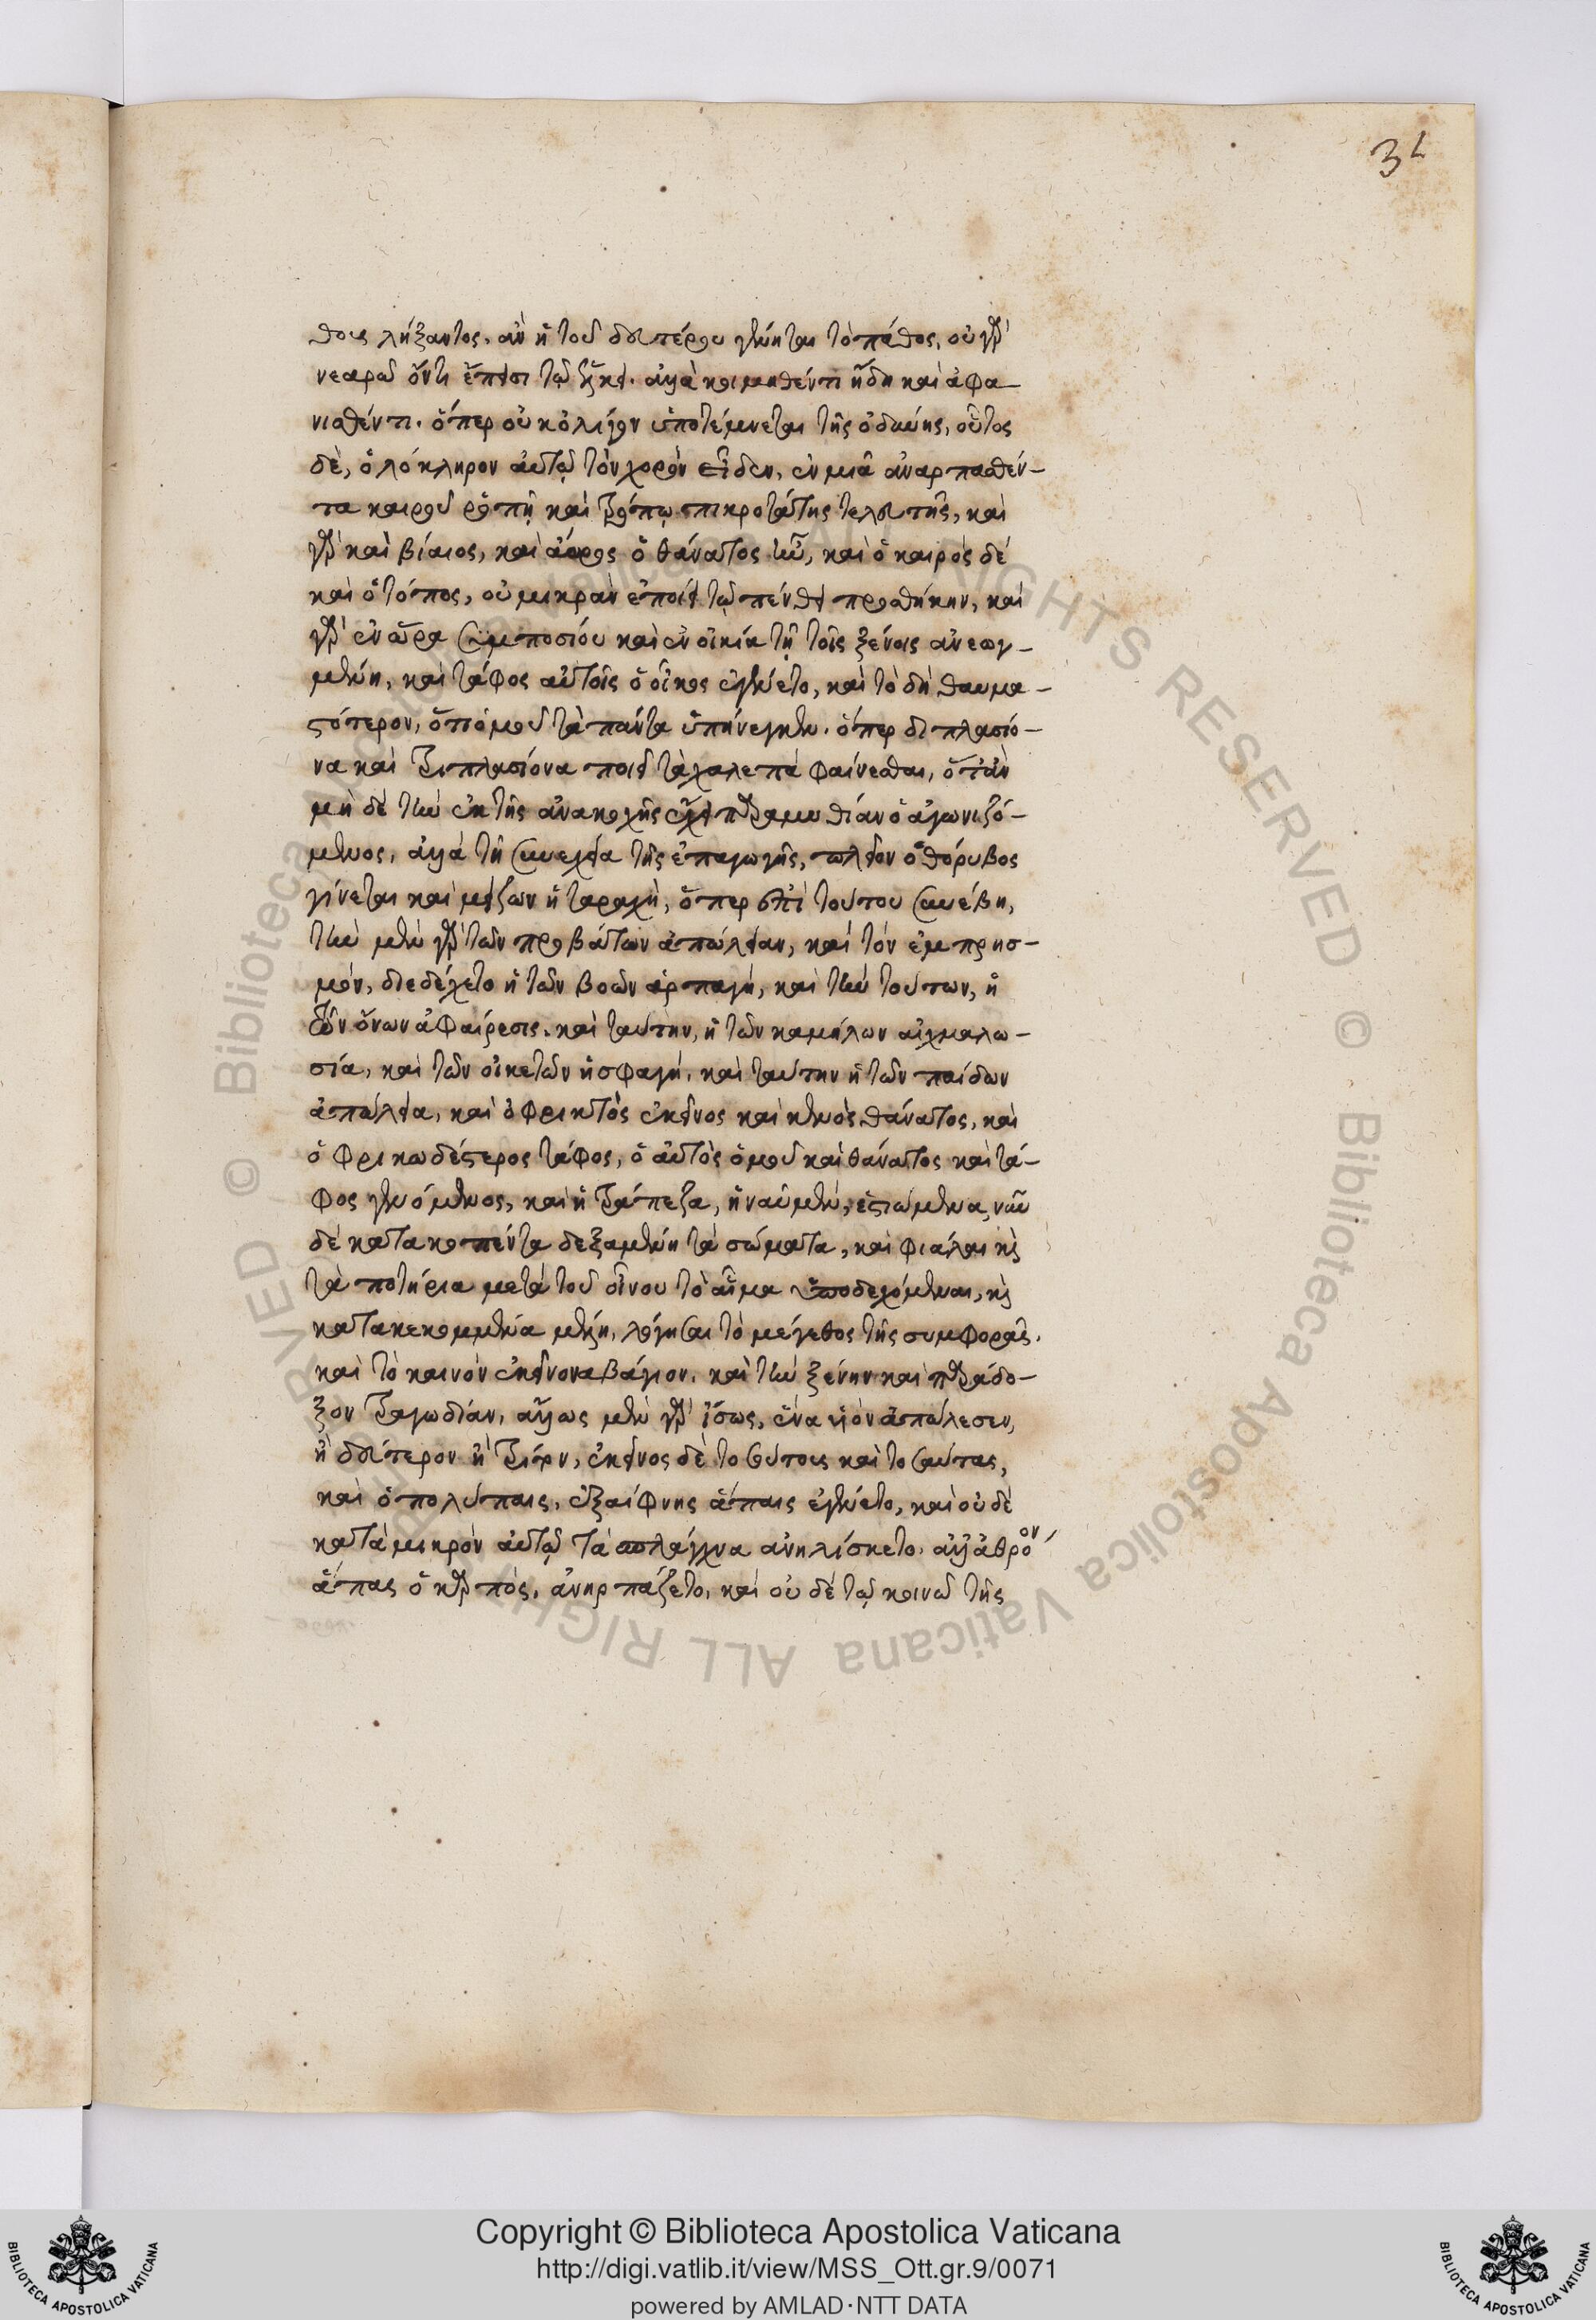 34
θους λήξαντος, ἂν ἡ τοῦ δευτέρου γένηται τὸ πάθος, οὐ γὰρ
νεαρῶ ὄντι ἔπεισι τῷ ἕλκει. ἀλλὰ κοιμηθέντι ἤδη καὶ ἀφα-
νισθέντι. ὅπερ οὐκ ὀλίγον ὑποτέμνεται τῆς ὀδύνης, οὗτος
δὲ, ὁλόκληρον αὐτῷ τὸν χορὸν εἶδεν, ἐν μιᾶ ἀναρπασθέν-
τα καιροῦ ῥοπῇ καὶ τρόπῳ πικροτάτης τελευτῆς, καὶ
γὰρ καὶ βίαιος, καὶ ἄωρος ὁ θάνατος ἦν, καὶ ὁ καιρὸς δὲ
καὶ ὁ τόπος, οὐ μικρὰν ἐποίει τῷ πένθει προσθήκην, καὶ
γὰρ ἐν ὥρα συμποσίου καὶ ἐν οἰκία τῇ τοῖς ξένοις ἀνεωγ-
μένη, καὶ τάφος αὐτοῖς ὁ οἶκος ἐγένετο, καὶ τὸ δὴ θαυμα-
στότερον, ὅτι ὁμοῦ τὰ πάντα ὑπήνεγκεν. ὅπερ διπλασίο-
να καὶ τριπλασίονα ποιεῖ τὰ χαλεπὰ φαίνεσθαι, ὅταν
μὴ δὲ τὴν ἐκ τῆς ἀνακωχῆς ἔχει παραμυθίαν ὁ ἀγωνιζό-
μενος, ἀλλὰ τῇ συνεχεία τῆς ἐπαγωγῆς, πλεῖον ὁ θόρυβος
γίνεται καὶ μείζων ἡ ταραχὴ, ὅπερ ἐπὶ τούτου συνέβη,
τὴν μὲν γὰρ τῶν προβάτων ἀπώλειαν, καὶ τὸν ἐμπρησ-
μόν, διεδέχετο ἡ τῶν βοῶν ἁρπαγή, καὶ τὴν τούτων, ἡ
τῶν ὄνων ἀφαίρεσις. καὶ ταύτην, ἡ τῶν καμήλων αἰχμαλω-
σία, καὶ τῶν οἰκετῶν ἡ σφαγή, καὶ ταύτην ἡ τῶν παίδων
ἀπώλεια, καὶ ὁ φρικτὸς ἐκεῖνος καὶ κενὸς θάνατος, καὶ
ὁ φρικωδέστερος τάφος, ὁ αὐτὸς ὁμοῦ καὶ θάνατος καὶ τά-
φος γενόμενος, καὶ ἡ τράπεζα, ἡ ναῦ μὲν, ἑστιώμενα, νῦν
δὲ κατακοπέντα δεξαμένη τὰ σώματα, καὶ φιάλαι καὶ
τὰ ποτήρια μετὰ τοῦ οἴνου τὸ αἷμα ὑποδεχόμεναι, καὶ
κατακεκομμένα μέλη, λόγισαι τὸ μέγεθος τῆς συμφορᾶς.
καὶ τὸ καινὸν ἐκεῖνο ναβάγιον. καὶ τὴν ξένην καὶ παράδο-
ξον τραγωδίαν, ἄλλως μὲν γὰρ ἴσως, ἕνα υἱὸν ἀπώλεσεν,
ἢ δεύτερον ἢ τρίτον, ἐκεῖνος δὲ τοσούτους καὶ τοσαύτας,
καὶ ὁ πολύπαις, ἐξαίφνης ἄπαις ἐγένετο, καὶ οὐδὲ
κατὰ μικρὸν αὐτῷ τὰ σπλάγχνα ἀνηλίσκετο. ἀλλ' ἀθρόον
ἅπας ὁ καρπὸς, ἀνηρπάζετο, καὶ οὐ δὲ τῷ κοινῶ τῆς
Copyright © Biblioteca Apostolica Vaticana
http://digi.vatlib.it/view/MSS_Ott.gr.9/0071
powered by AMLAD·NTT DATA